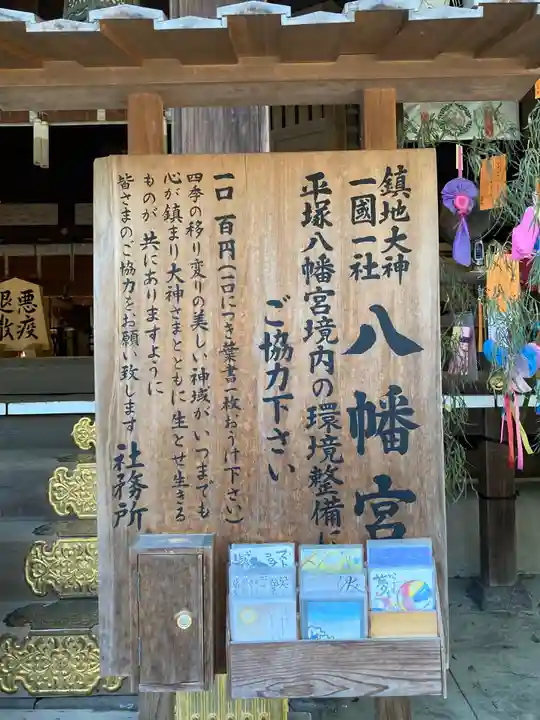 鎮地大神
一國一社
八幡宮
平塚八幡宮境内の環境整備に
ご協力下さい
一口 百円(一口につき葉書一枚おうけ下さい)
四季の移り変りの美しい神域が いつまでも
心が鎮まり大神さまとともに生とせ生きる
ものが 共にありますように
皆さまのご協力をお願い致します
社務所
悪疫
退散